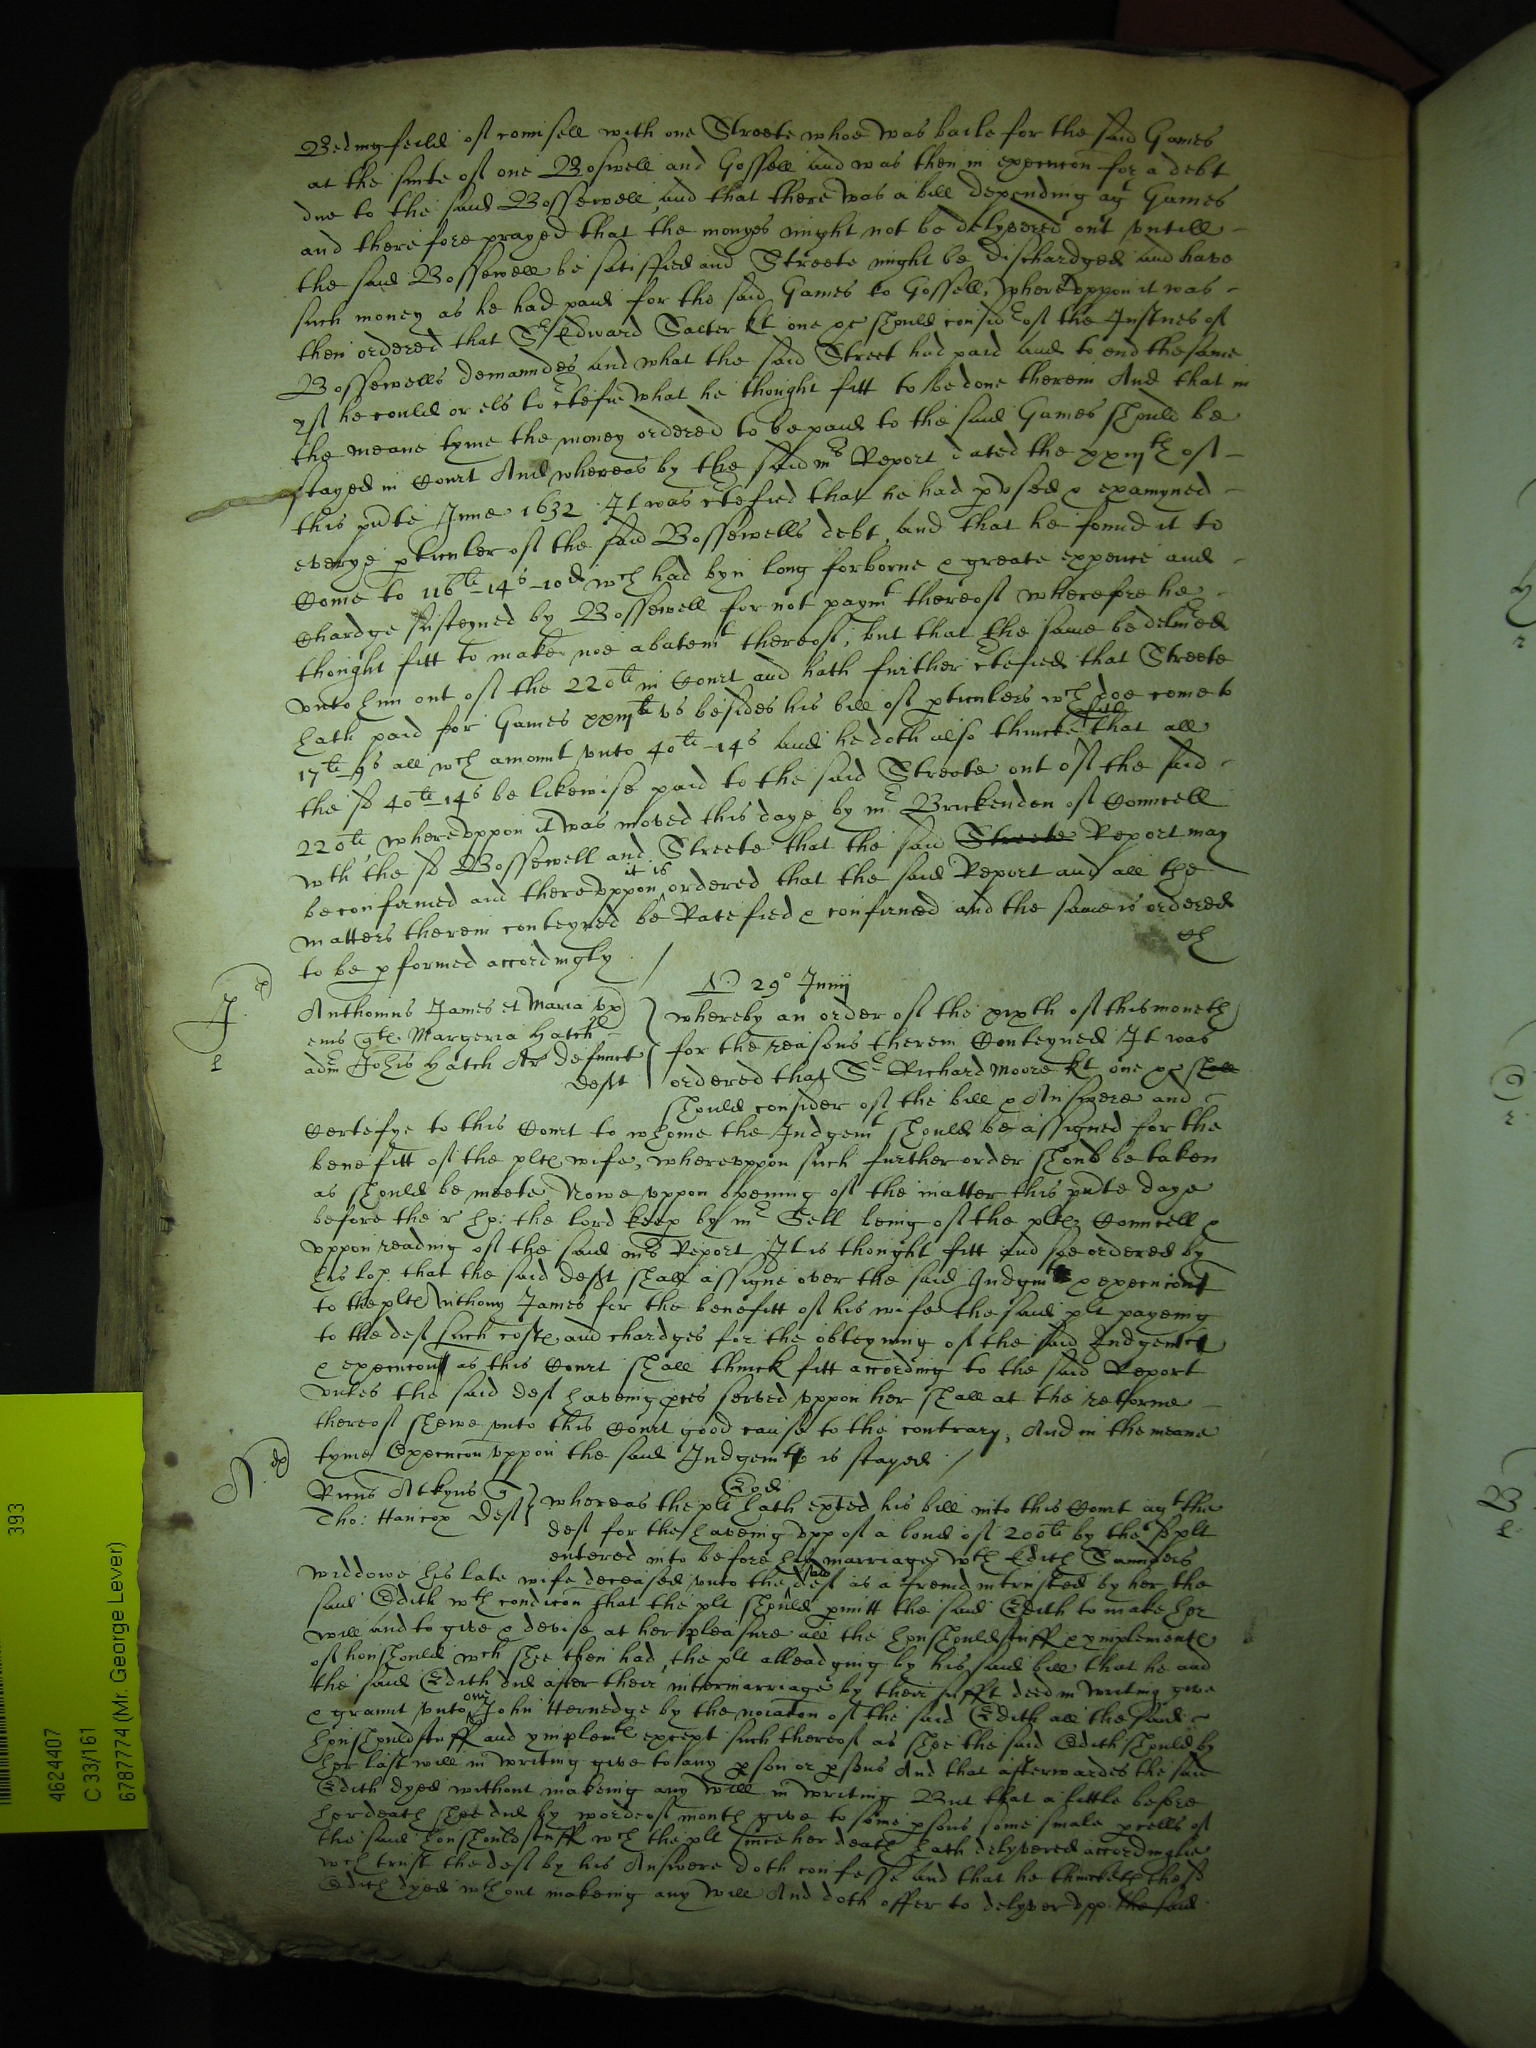 Bedingfeild of councell with one Streete whoe was baile for the said Games
at the suite of one Boswell and Gossell and was then in execucon for a debt
due to the said Bossewell, and that there was a bill depending agt Games
and therefore prayed that the monyes might not be delyvered out untill
the said Bossewell be satisfied and Streete might be dischardged and have
such money as he had paid for the said Games to Gossell, whereuppon it was
then ordered that Sr Edward Salter kt one &c should considr of the Justnes of
Bossewells demaundes and what the said Street had paid and to end the same
yf he could or els to ctefie what he thought fitt to be done therein And that in
the meane tyme the money ordered to be paid to the said Games should be
stayed in Court And whereas by the said mrs Report dated the xxiijth of
this pnte June 1632. It was ctefied that he had pused & examyned
everye pticuler of the said Bossewells debt, and that he found it to
Come to 116li-14s-10d wch had byn long forborne & greate expence and
Chardge susteyned by Bossewell for not paymt thereof wherefore he
thought fitt to make noe abatemt thereof, but that the same be delived
unto him out of the 220li in Court and hath further ctefied that Streete
hath paid for Games xxiijli vs besides his bill of pticulers wch doe come to
17li-9s all wch amount unto 40li-14s and he doth also thincke fitt that all
the sd 40li-14s be likewise paid to the said Streete out of the said
220li, whereuppon it was moved this daye by mr Brickenden of Councell
wth the sd Bossewell and Streete that the said Streete Report may
be confirmed and thereuppon it is ordered that the said Report and all the
matters therein conteyned be Ratefied & confirmed and the same is ordered
to be pformed accordingly /
29o Junij
Anthonius James et Maria ux
eius Margeria Hatch
adm Johis Hatch Ar defunct
Deft
whereby an order of the xixth of this moneth
for the reasons therein Conteyned It was
ordered that Sr Richard Moore kt one &c shall
should consider of the bill & Answere and
Certefye to this Court to whome the Judgemt should be assigned for the
benefitt of the plts wife, whereuppon such further order should be taken
as should be meete Nowe uppon opening of the matter this pnte daye
before the r ho: the lord keep by mr Sell being of the plts Councell &
uppon reading of the said mrs Report It is thought fitt and soe ordered by
his lop. that the said deft shall assigne over the said Judgmt & execucon
to the plt Anthony James for the benefitt of his wife the said plt payeing
to the deft such costs and chardges for the obteyning of the said Judgemt
& execucon as this Court shall thinck fitt according to the said Report
unles the said deft haveing pces served uppon her shall at the retorne
thereof shewe unto this Court good cause to the contrary, And in the meane
tyme Execucon uppon the said Judgemt is stayed /
Ricus Atkyns
Tho: Hancox Deft
Eod
whereas the plt hath exhted his bill into this Court agt the
deft for the haveing upp of a bond of 200li by the sd plt
entered into before his marriage wth Edith Saunders
widdowe his late wife deceased unto the said deft as a freind intrusted by her the
said Edith wth condicon that the plt should pmitt the said Edith to make her
will and to give & devise at her pleasure all the houshouldstuff & ymplements
of houshould wch shee then had, the plt alleadging by his said bill that he and
the said Edith did after their intermarriage by their sufft deed in writing give
& graunt unto one John Hernedge by the nominacon of the said Edith all the said
houshouldstuff and ymplemts except such thereof as shee the said Edith should by
her last will in writing give to any pson or psons And that afterwardes the said
Edith dyed without makeing any will in writing But that a little before
her death shee did by worde of mouth give to some psons some smale pcells of
the said houshouldstuff wch the plt since her death hath delyvered accordinglie
wch trust the deft by his Answere doth confesse and that he thincketh the sd
Edith dyed wthout makeing any will And doth offer to delyver upp the said
393
4624407
C 33/161
6787774 (Mr. George Lever)